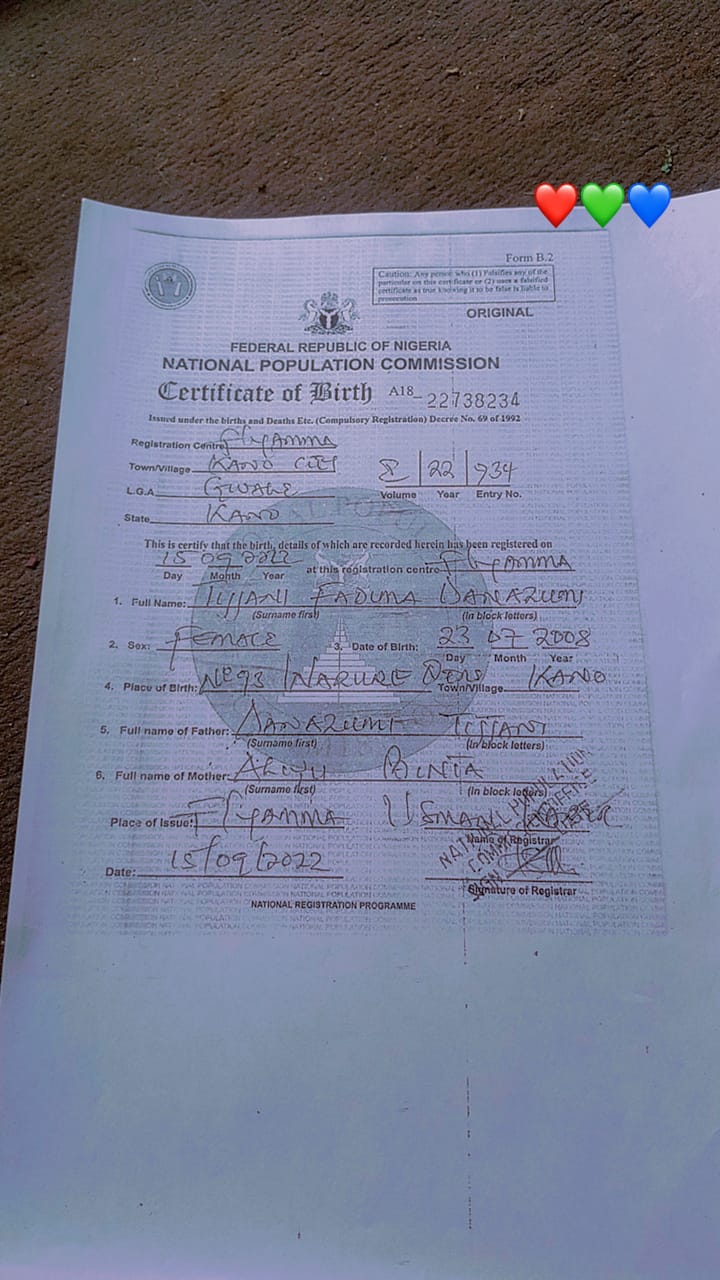 Form B.2
Caution: Any person who (1) Falsifies any of the
particular on this certificate or (2) uses a falsified
certificate as true knowing it to be false is liable to
prosecution
ORIGINAL
FEDERAL REPUBLIC OF NIGERIA
NATIONAL POPULATION COMMISSION
Certificate of Birth A18_ 22738234
Issued under the births and Deaths Etc. (Compulsory Registration) Decree No. 69 of 1992
Registration Centre
Town/Village KANO CITY
22 934
Volume Year Entry No.
L.G.A GWALE
State KANO
This is certify that the birth, details of which are recorded herein has been registered on
15 09 2022 at this registration centre
Day Month Year
1. Full Name: TIJJANI DANAZUMI
(Surname first) (In block letters)
2. Sex: FEMALE 3. Date of Birth: 23 07 2008
Day Month Year
4. Place of Birth: No 93 Town/Village KANO
5. Full name of Father: DANAZUMI TIJJANI
(Surname first) (In block letters)
6. Full name of Mother: ALIYU BINTA
(Surname first) (In block letters)
Place of Issue: USMAN
Name of Registrar
Date: 15/09/2022
Signature of Registrar
NATIONAL REGISTRATION PROGRAMME